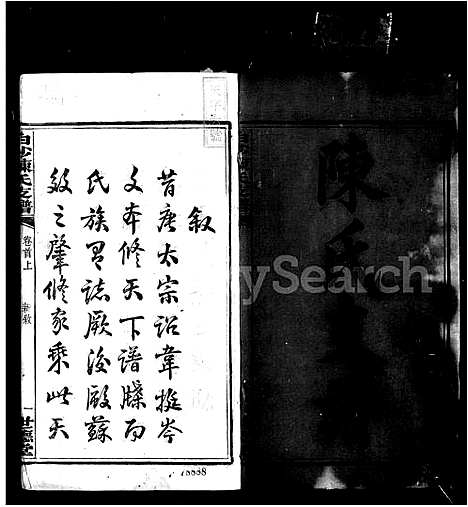 陳氏支譜
敘
昔唐太宗詔韋挺岑
文本修天下譜牒而
氏族誌厥後歐蘇
效之肇修家乘此天
白沙陳氏支譜
卷首上
敘
一
世德堂
ySearch